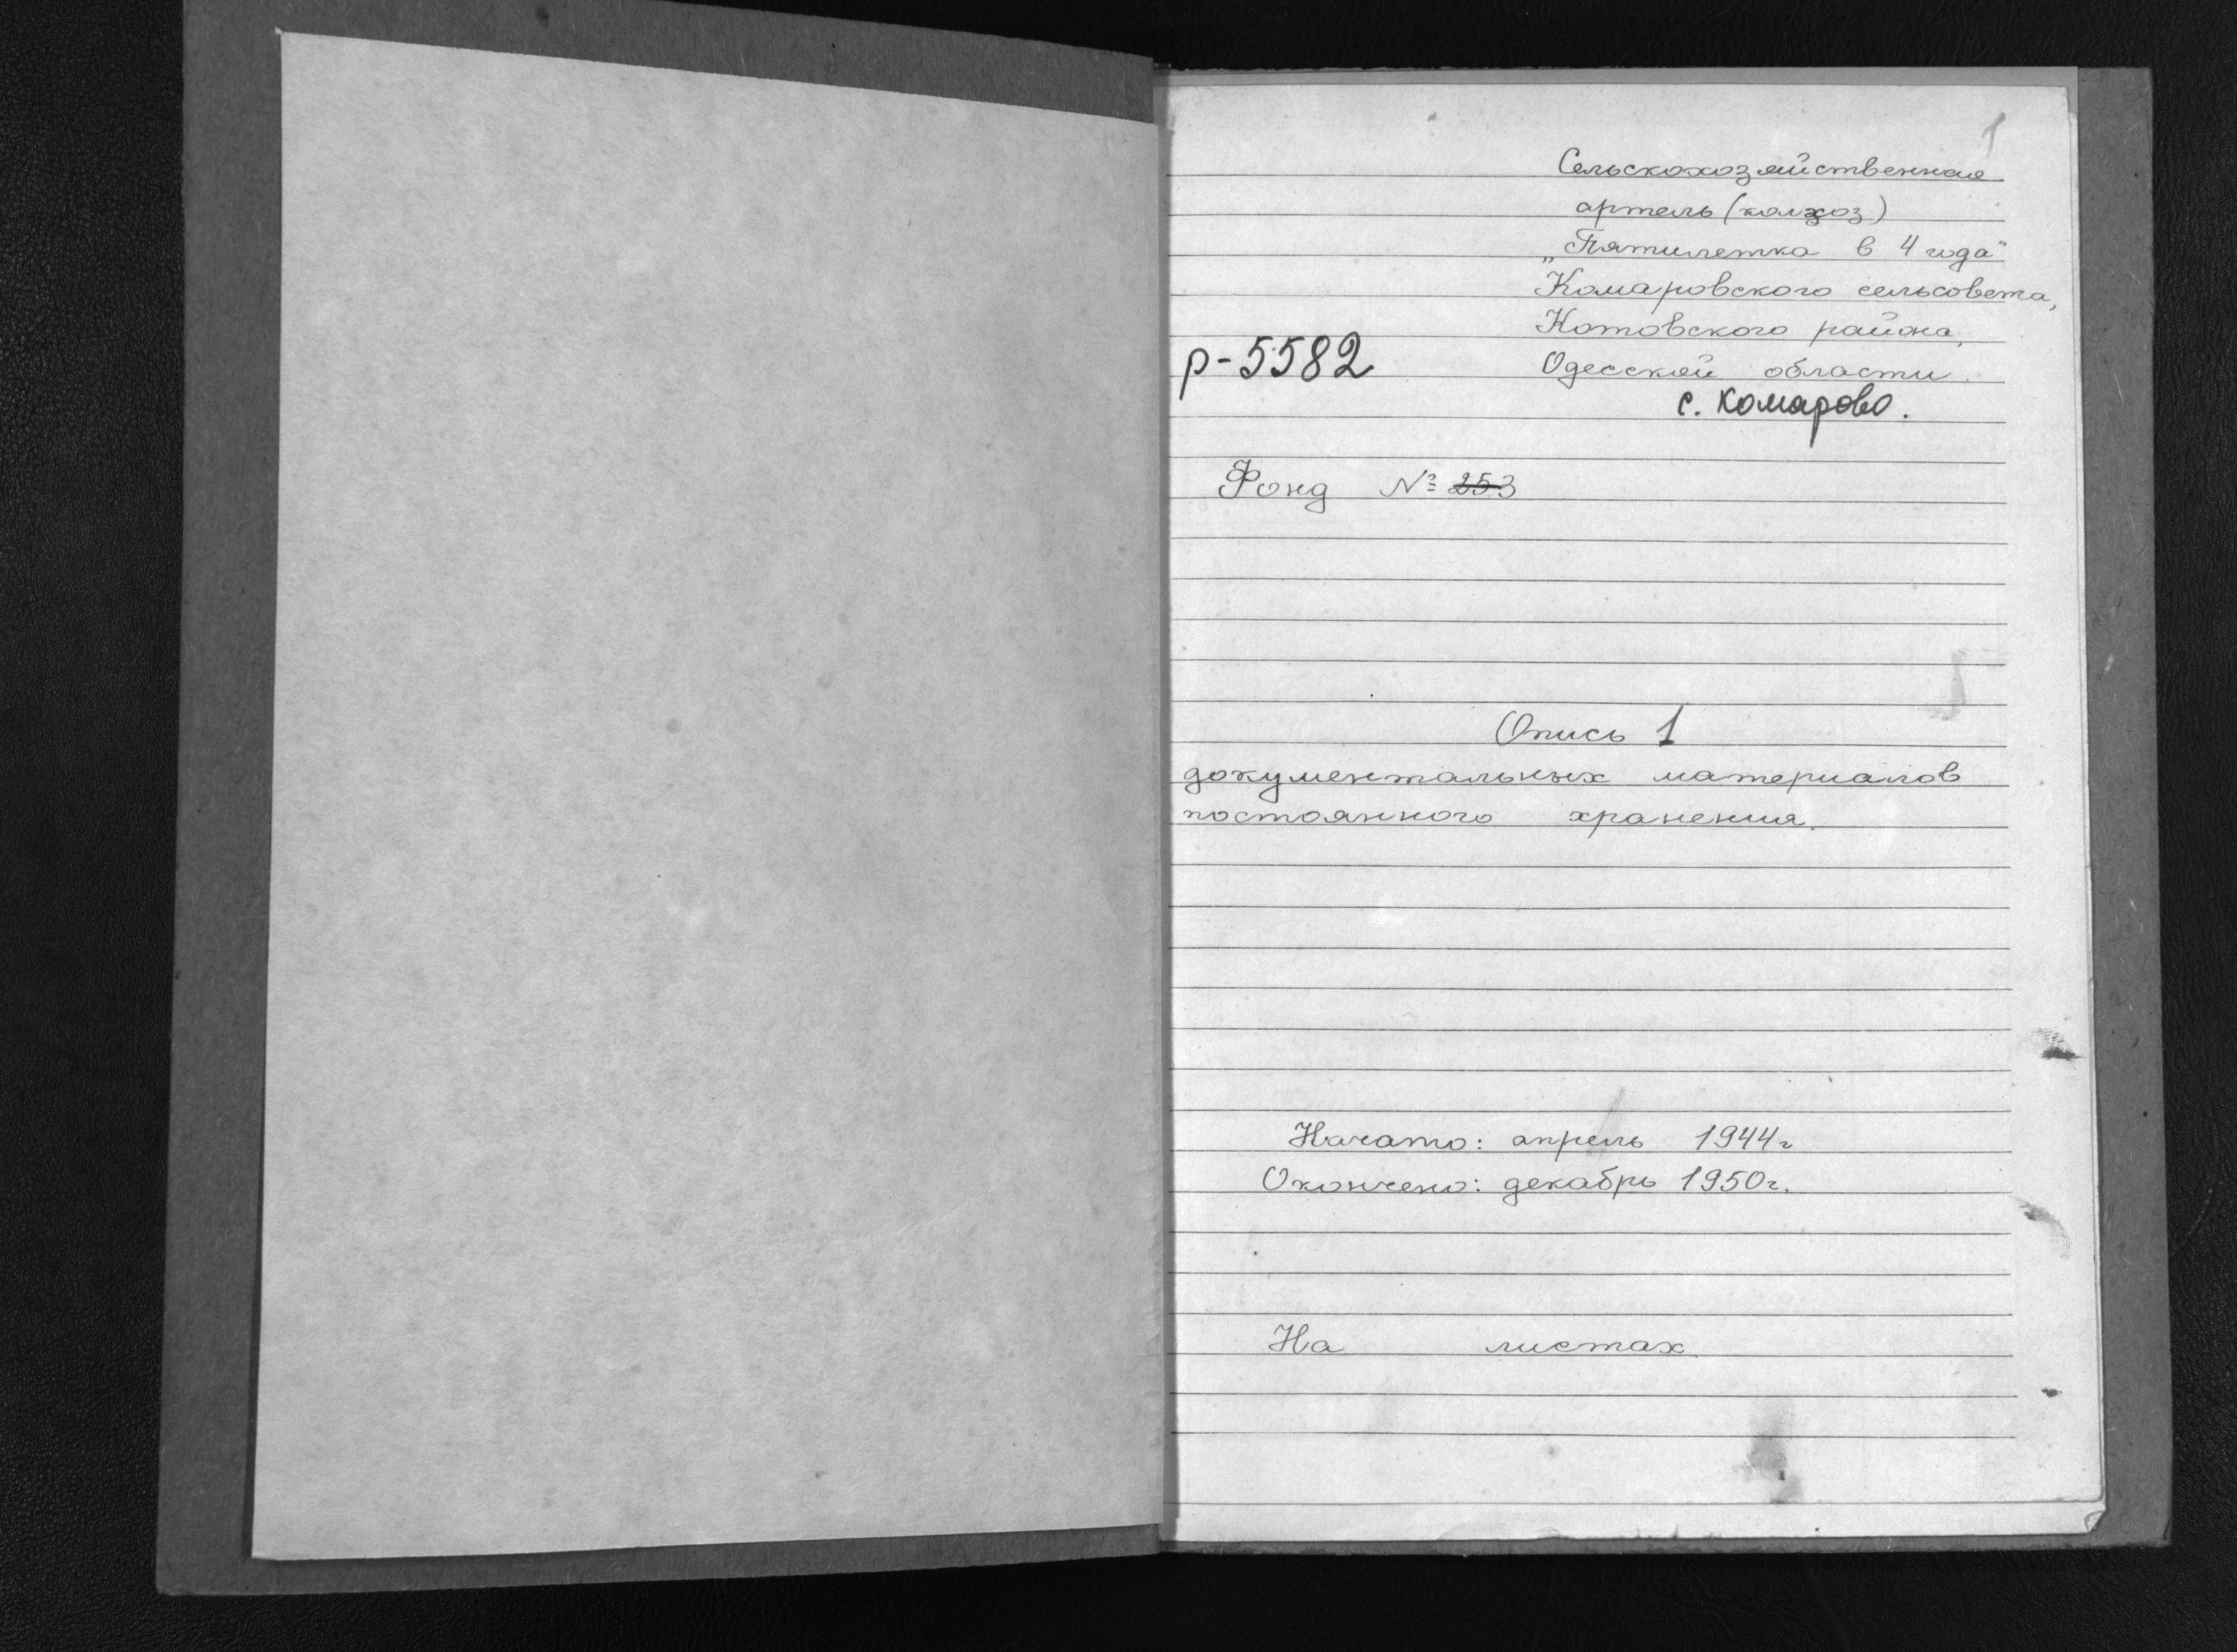 1
Сельскохозяйственная
артель (колхоз)
„Пятилетка в 4 года"
Комаровского сельсовета,
Котовского района,
р-5582
Одесской области.
с. Комарово.
Фонд № 253
Опись 1
документальных материалов
постоянного хранения.
Начато: апрель 1944г
Окончено: декабрь 1950г.
На листах.